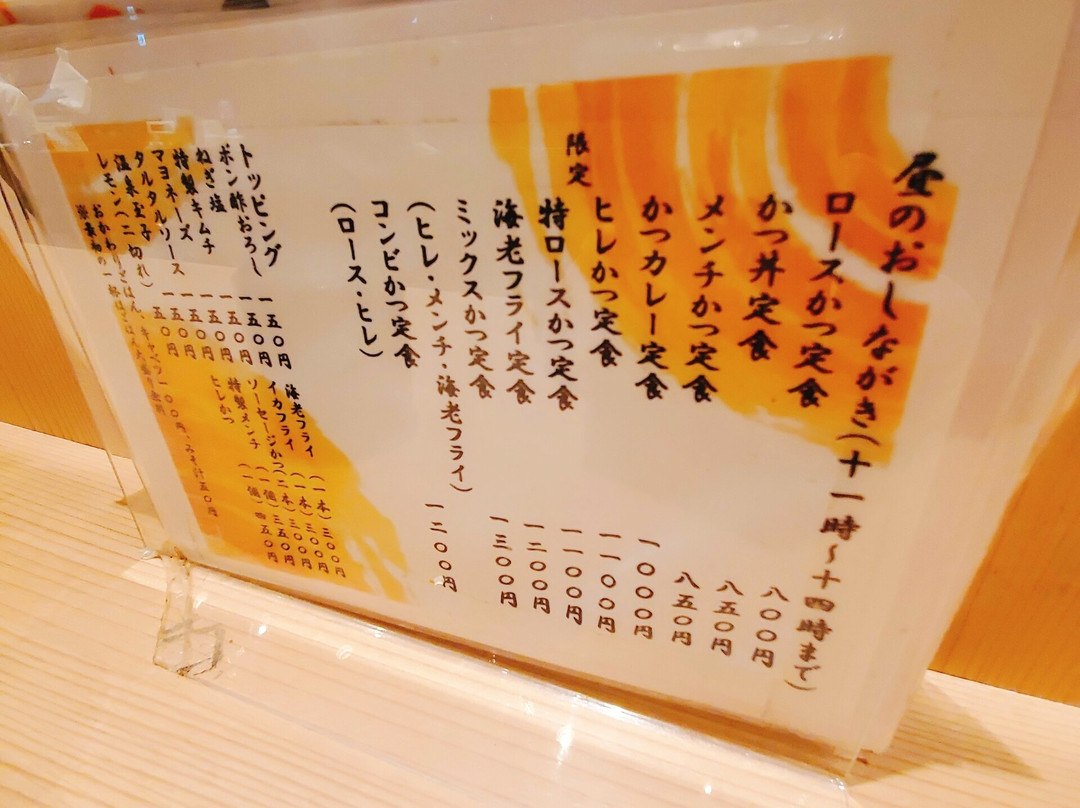 昼のおしながき(十一時〜十四時まで)
ロースかつ定食 八〇〇円
かつ丼定食 八五〇円
メンチかつ定食 八五〇円
かつカレー定食 一〇〇〇円
限定 ヒレかつ定食 一一〇〇円
特ロースかつ定食 一一〇〇円
海老フライ定食 一二〇〇円
ミックスかつ定食 一三〇〇円
(ヒレ・メンチ・海老フライ)
コンビかつ定食 一二〇〇円
(ロース・ヒレ)
トッピング
ポン酢おろし 一五〇円
ねぎ塩 一五〇円
特製キムチ 一五〇円
マヨネーズ 一五〇円
タルタルソース 一五〇円
温泉玉子 一五〇円
レモン(二切れ)
海老フライ (一本) 三〇〇円
イカフライ (一本) 三〇〇円
ソーセージかつ (二本) 三五〇円
特製メンチ (一個)
ヒレかつ (一個)
おかわり ごはん、キャベツ一〇〇円、みそ汁五〇円